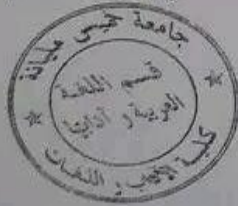 جامعة خميس مليانة
قسم اللغة
العربية و آدابها
كلية الآداب و اللغات